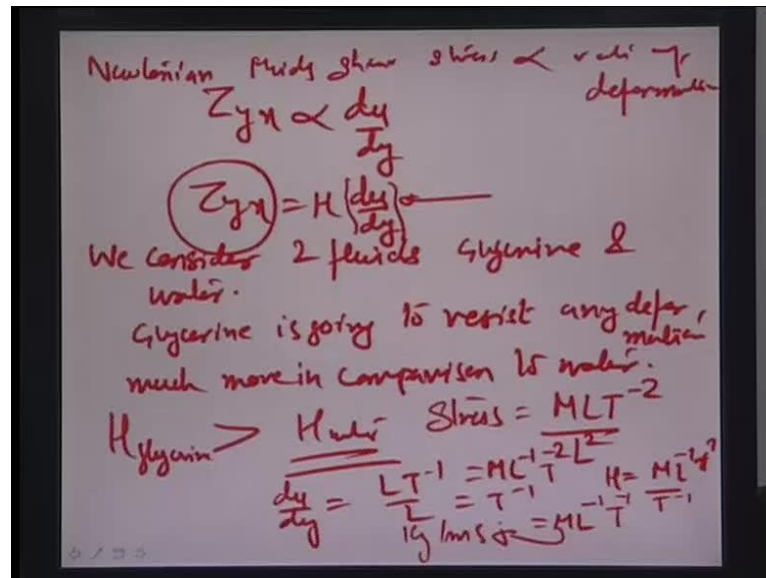 Newtonian fluids shear stress ∝ rate of
deformation
τyx ∝ du/dy
τyx = μ (du/dy)
We consider 2 fluids Glycerine &
water.
Glycerine is going to resist any deformation,
much more in comparison to water.
μglycerin > μwater Stress = MLT⁻²/L²
= ML⁻¹T⁻²
du/dy = LT⁻¹/L = T⁻¹
μ = ML⁻¹T⁻²/T⁻¹
= ML⁻¹T⁻¹